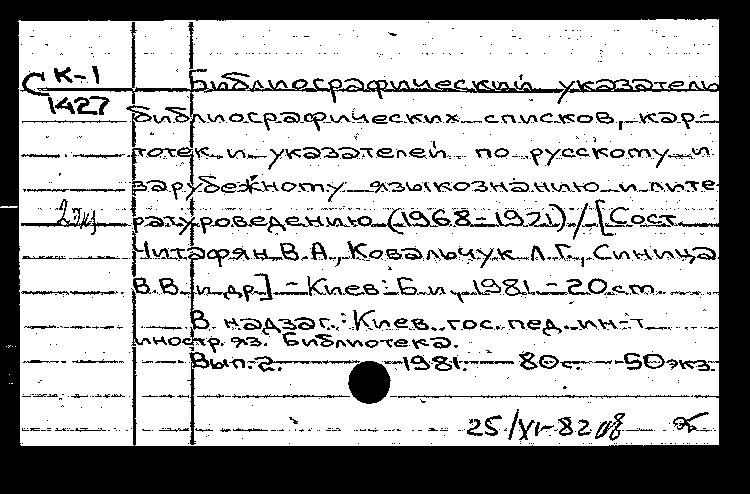 К-1
1427
Библиографический указатель
библиографических списков, кар-
тотек и указателей по русскому и
зарубежному языкознанию и лите
2 экз
ратуроведению (1968-1971) / [Сост.
Читафян В.А., Ковальчук Л.Г., Синица
В.В. и др.] - Киев: Б.и., 1981 - 20 см
В надзаг.: Киев. гос. пед. ин-т
иностр. яз. Библиотека.
Вып. 2. 1981. 80 с. 50 экз.
25/XI-82